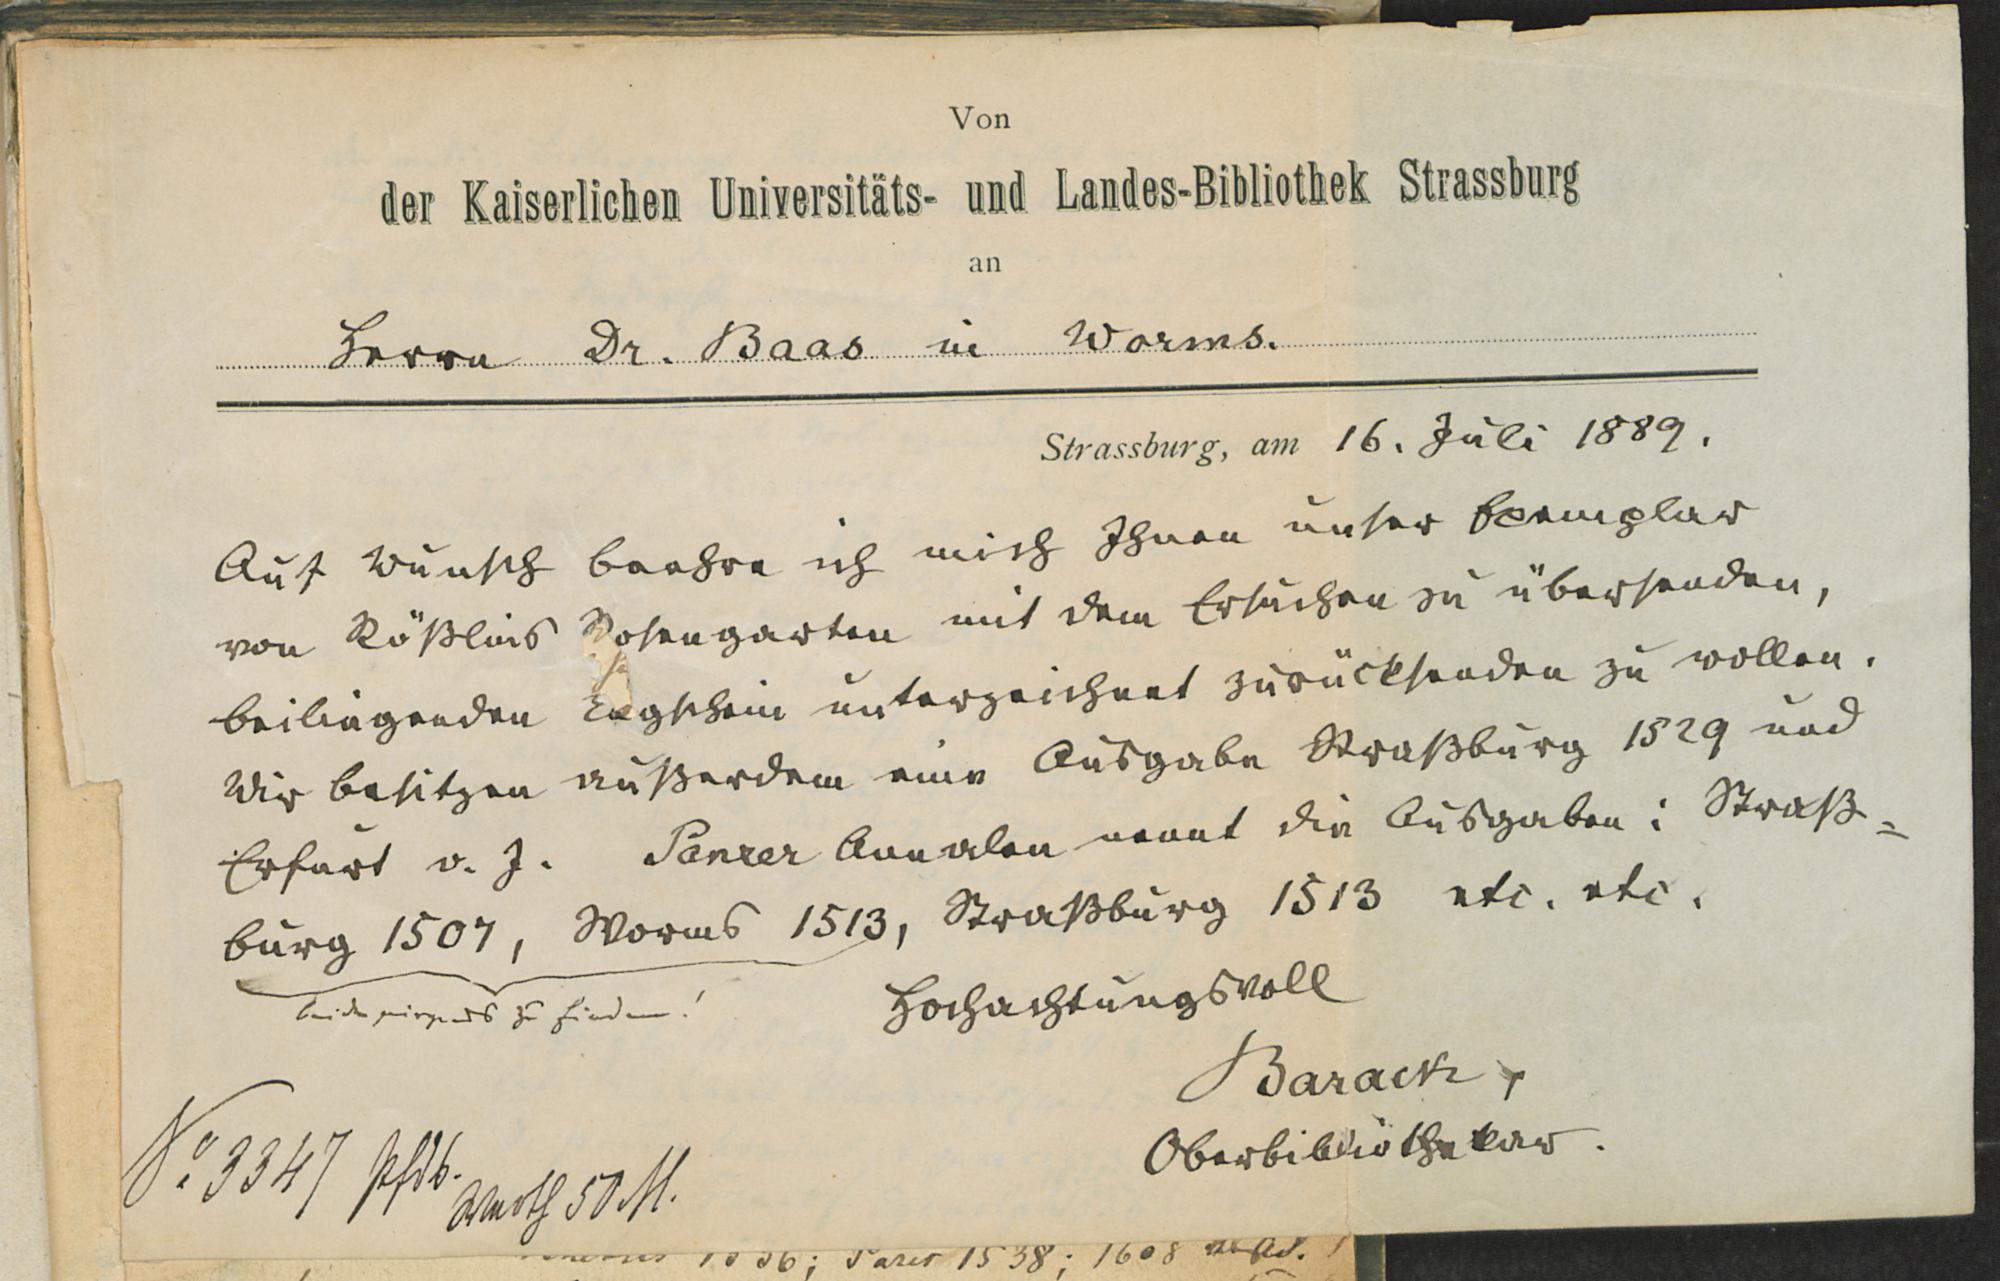 Von
der Kaiserlichen Universitäts- und Landes-Bibliothek Strassburg
an
Herrn Dr. Baas in Worms.
Strassburg, am 16. Juli 1889.
Auf Wunsch beehre ich mich Ihnen unser Exemplar
von Rößlins Rosengarten mit dem Ersuchen zu übersenden,
beiliegenden Legschein unterzeichnet zurücksenden zu wollen.
Wir besitzen außerdem eine Ausgabe Straßburg 1529 und
Erfurt o. J. Panzer Annalen nennt die Ausgaben: Straß=
burg 1507, Worms 1513, Straßburg 1513 etc. etc.
beide nirgends zu finden!
Hochachtungsvoll
Barack,
Oberbibliothekar.
No 3347 Pfdb.
Werth 50 M.
1536; Paris 1538; 1608